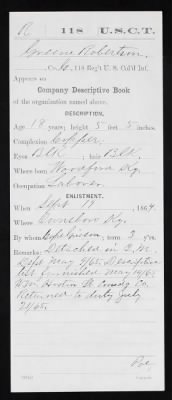 R | 118 | U.S.C.T.
Greene Robertson
Co. C, 118 Reg't U. S. Col'd Inf.
Appears on
Company Descriptive Book
of the organization named above.
DESCRIPTION.
Age 18 years; height 5 feet 5 inches.
Complexion Copper
Eyes Blk; hair Blk.
Where born Woodford Ky.
Occupation Laborer
ENLISTMENT.
When Sept 19, 1864
Where Owensboro Ky.
By whom; term 3 y'rs.
Remarks: Detached in Q.M.
Dept May 7/65. Descriptive
list furnished May 19/65
Co.
Returned to duty July